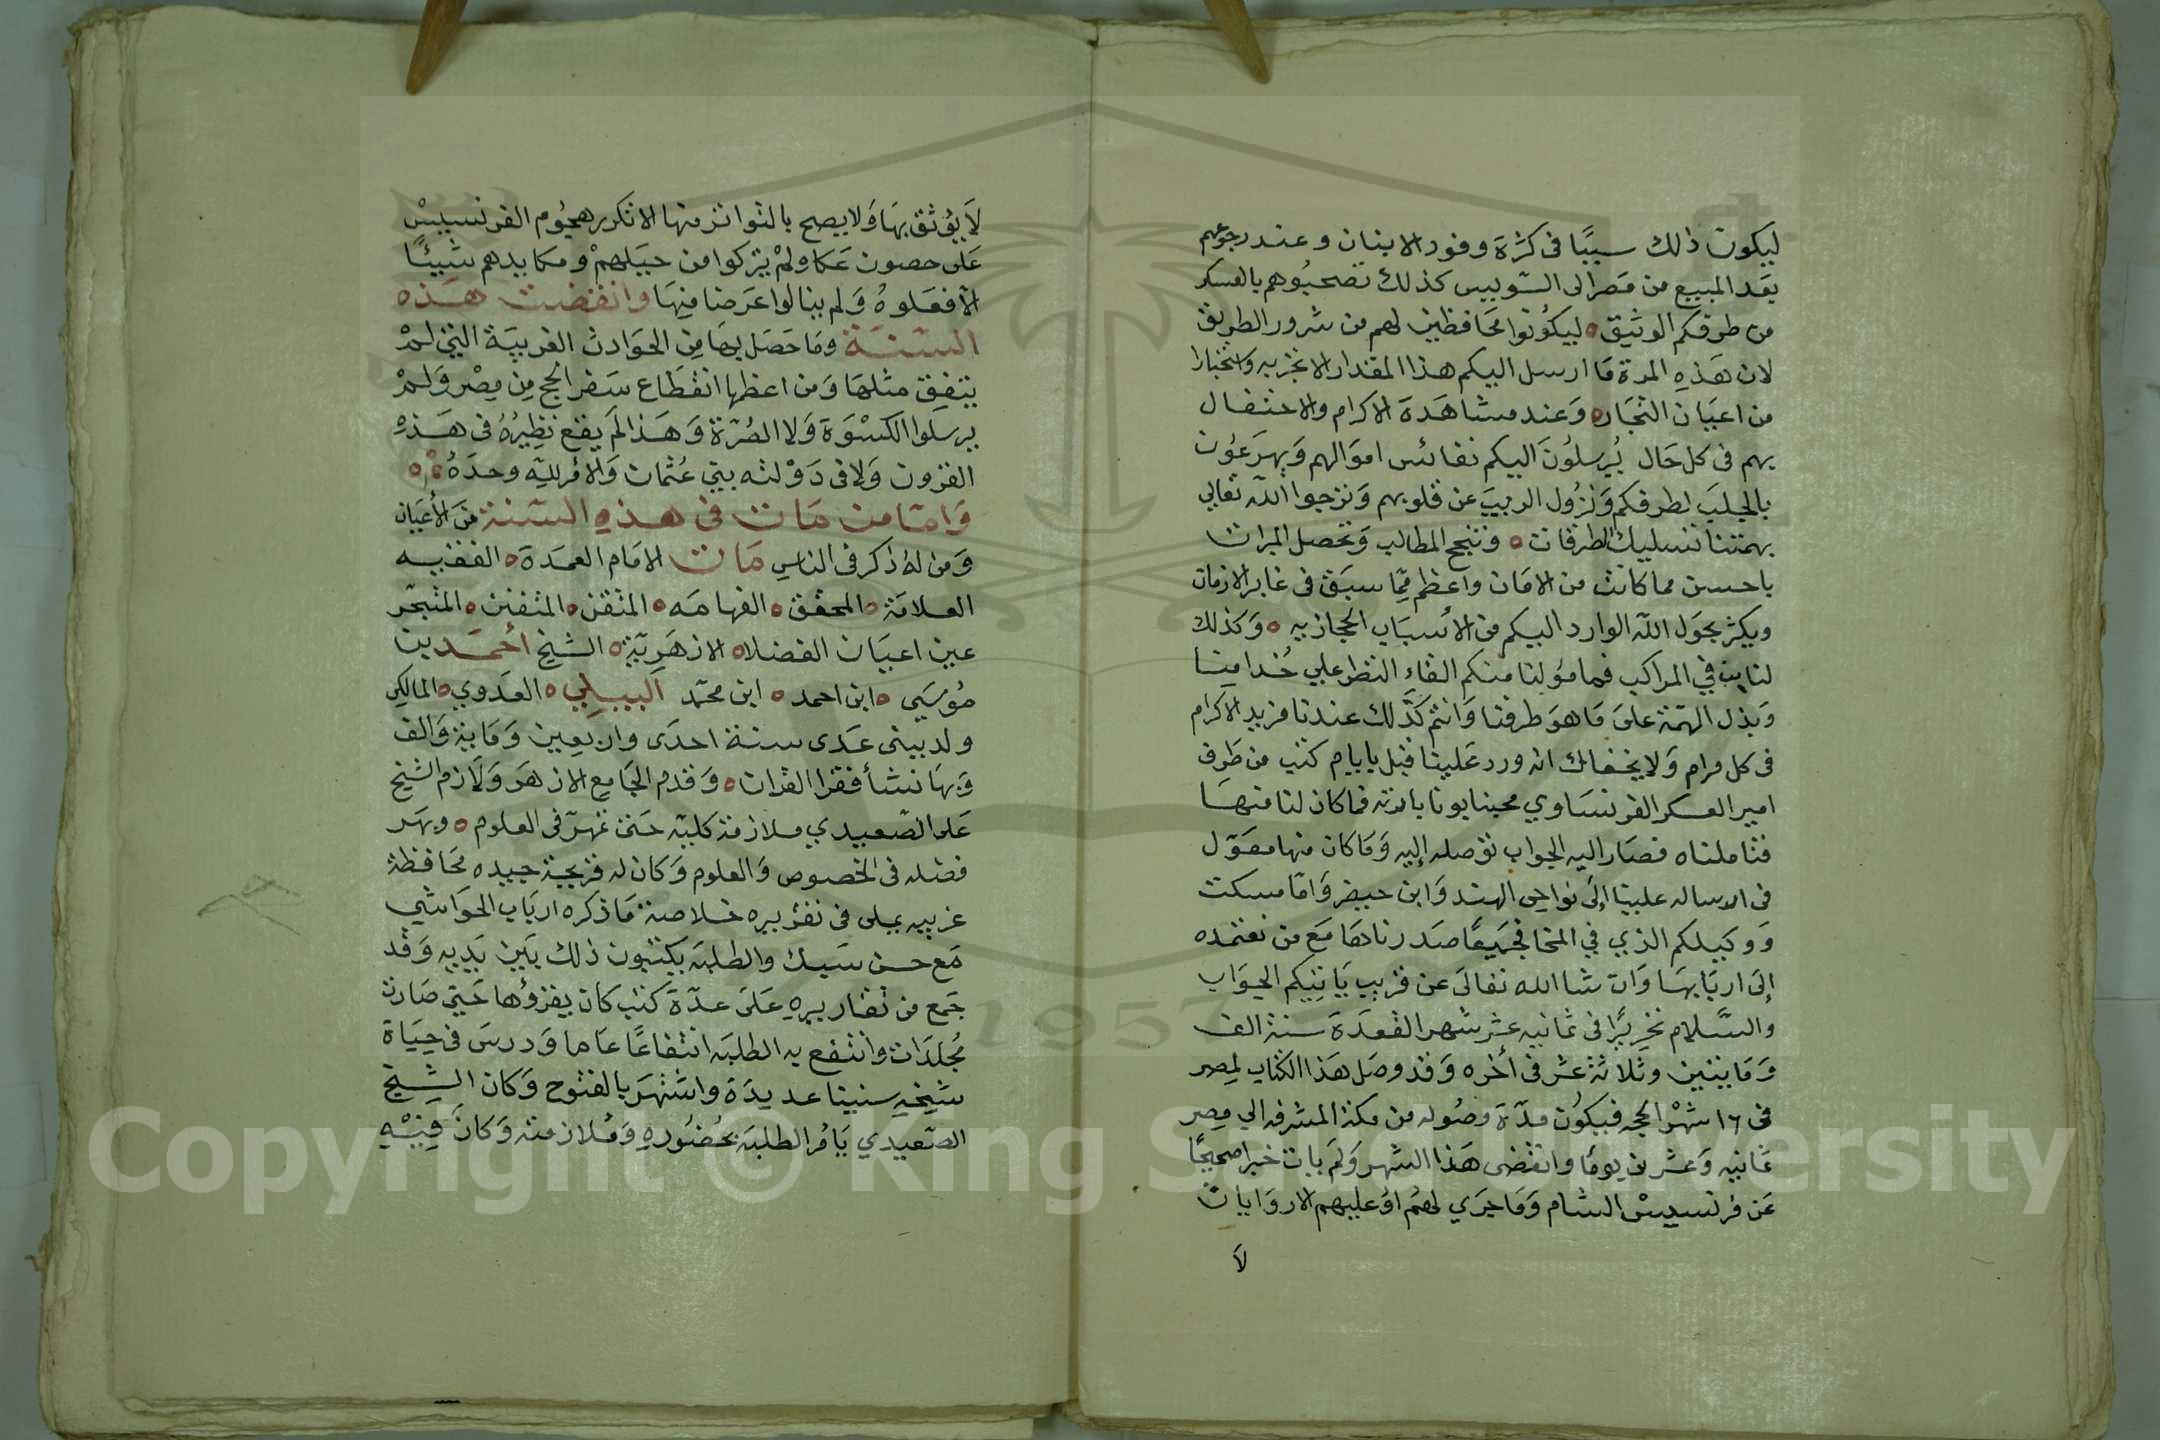 ليكون ذلك سببًا فى كثرة وفود الابنان وعند رجوعهم
بعد المبيع من مصر الى السّويس كذلك تصحبُوهم بالعسكر
من طرفكم الوثيق ه ليكوُنوا محَافظين لهم من شرور الطريق
لان هَذهِ المرة مَا ارسل اليكم هذا المقدار الا تجربه واختبارا
من اعيَان التجَار ه وَعند مشاهَدَة الاكرام والاحتفال
بهم فى كل حَال يُرسِلُونَ اليكم نفائس اموَالهم وَيهرَعُون
بالجلَب لطرفكم وَنزُول الريب عن قلوبهم وَنرجوا اللّه تعالى
بهمتنا تنسليك الطرقات ه وتنجح المطالب وَتحصل المرات
باحسن مما كانت من الامَان واعظم مِمّا سبَق فى غابر الازمان
ويكثر بحوَل اللّه الوارد اليكم من الاسْبَاب الحجازيه ه وَكذلك
لنا بن في المراكب فمامؤلنا منكم القاء النظر على خُدامنا
وَبذل الهمّة علىَ مَا هوَ طرفنا وَانتم كذَلك عندنا مزيد الاكرام
فى كل مرام وَلا يخفاك انه ورد عَلينا قبل بايام كتب من طَرف
امير العسكر الفرنسَاوي محبنا بونابارته فما كان لنا منهَا
فتاملناه فصَار اليه الجواب نوَصله إليه وَمَا كان منها معَوّل
فى ارساله علينا إلىَ نواحى الهند وَابن حيضر وَامّا مسكت
وَوكيلكم الذي في المخا فجَميعًا صدرناهَا مَع من نعتمده
إلىَ اربَابهَا وَان شا الله تعَالىَ عن قريب يَاتيكم الجوَاب
والسَّلام تحَريرًا فى ثمانيه عشر شهر القعدَة سَنة الف
وَمَايتين وثلاثة عشر فى أخره وَقد وصَل هَذا الكتاب لمِصر
فى ١٦ شهْر الحجه فيكوُن مدّة وصُوله من مكة المشرفه الي مِصر
ثمَانيه وَعشرين يومًا وانقضى هَذا الشهر وَلمَ يات خبرا صحيحًا
عَن فرنسيسْ الشام وَمَا جرَي لهمُ اوْ عليهم الا روَايات
لاَ
لاَ يوُثق بهَا وَلا يصح بالتواتر منها الا تكرر هجوُم الفرنسيسْ
عَلى حصون عَكا ولمْ يتركوا من حيَلهمْ ومكايدهم شيئًا
الاّ فعَلوهُ وَلم ينالوا غرَضا منِهَا وانقضت هَذه
السّنَة ومَا حَصَل بهَا مِن الحوَادث الغريبَة التي لمْ
يتفِق مثلهَا وَمن اعظمها انقطَاع سَفر الحج مِن مِصْر وَلمْ
يرسلوا الكسْوَة وَلا الصُرّة وَهَذا لمَ يقَع نظِيرُهُ فى هَذهِ
القرون وَلا فى دَوْلته بنى عُثمان وَالامْر لليّه وحدَهُ ه
وَامّا من مَات فى هذهِ السّنة مَن الأعيَان
وَمن لهُ ذكر فى الناسِ مَات الامَام العمدَة ه الفقيه
العلامَة ه المحقق ه الفهامَه ه المتقن ه المتفنن ه المتبحّر
عين اعيَان الفضلاه الازهَرِيّة ه الشيخ أحَمد بن
موُسَي ه ابن احمد ه ابن محمّد اَلبيلِي ه العدَوي ه المالكي
ولد ببنى عَدى سنة احدَى وارْبعِين وَمَاية وَالف
وَبهَا نشأ فقرا القران ه وَقدم الجَامع الازهَر وَلَازم الشيخ
عَلى الصّعيدي ملازمة كليّه حَتى تمهرّ فى العلوم ه وبهَر
فضله فى الخصوص وَالعلوم وَكان له قريحِة جيده محَافظة
غريبه يملى فى تقرْيره خلاصة مَا ذكره اربَاب الحوَاشي
مَع حسن سَبك والطلبَة يكتبون ذلك بَين يَديه وَقد
جَمع من تقاريرهِ عَلىَ عدّة كتب كان يقرؤها حَتىّ صَارت
مُجلدَات وانتفع به الطلبَه انتفاعًا عَاما وَدرسَ فى حيَاة
شيخهِ سنينا عديدَة واشتهرَ بالفتوح وَكان الشيخ
الصّعيدي يَامُر الطلبَة بحُضوُرهِ وَمُلازمته وَكان فِيهْ